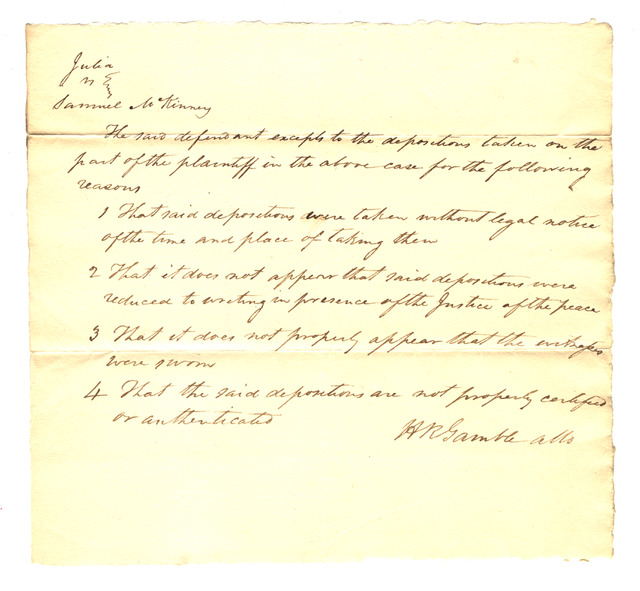 Julia
vs
Samuel McKinney
The said defendant excepts to the depositions taken on the
part of the plaintiff in the above case for the following
reasons
1 That said depositions were taken without legal notice
of the time and place of taking them
2 That it does not appear that said depositions were
reduced to writing in presence of the Justice of the peace
3 That it does not properly appear that the witnesses
were sworn
4 That the said depositions are not properly certified
or authenticated
H R Gamble atto